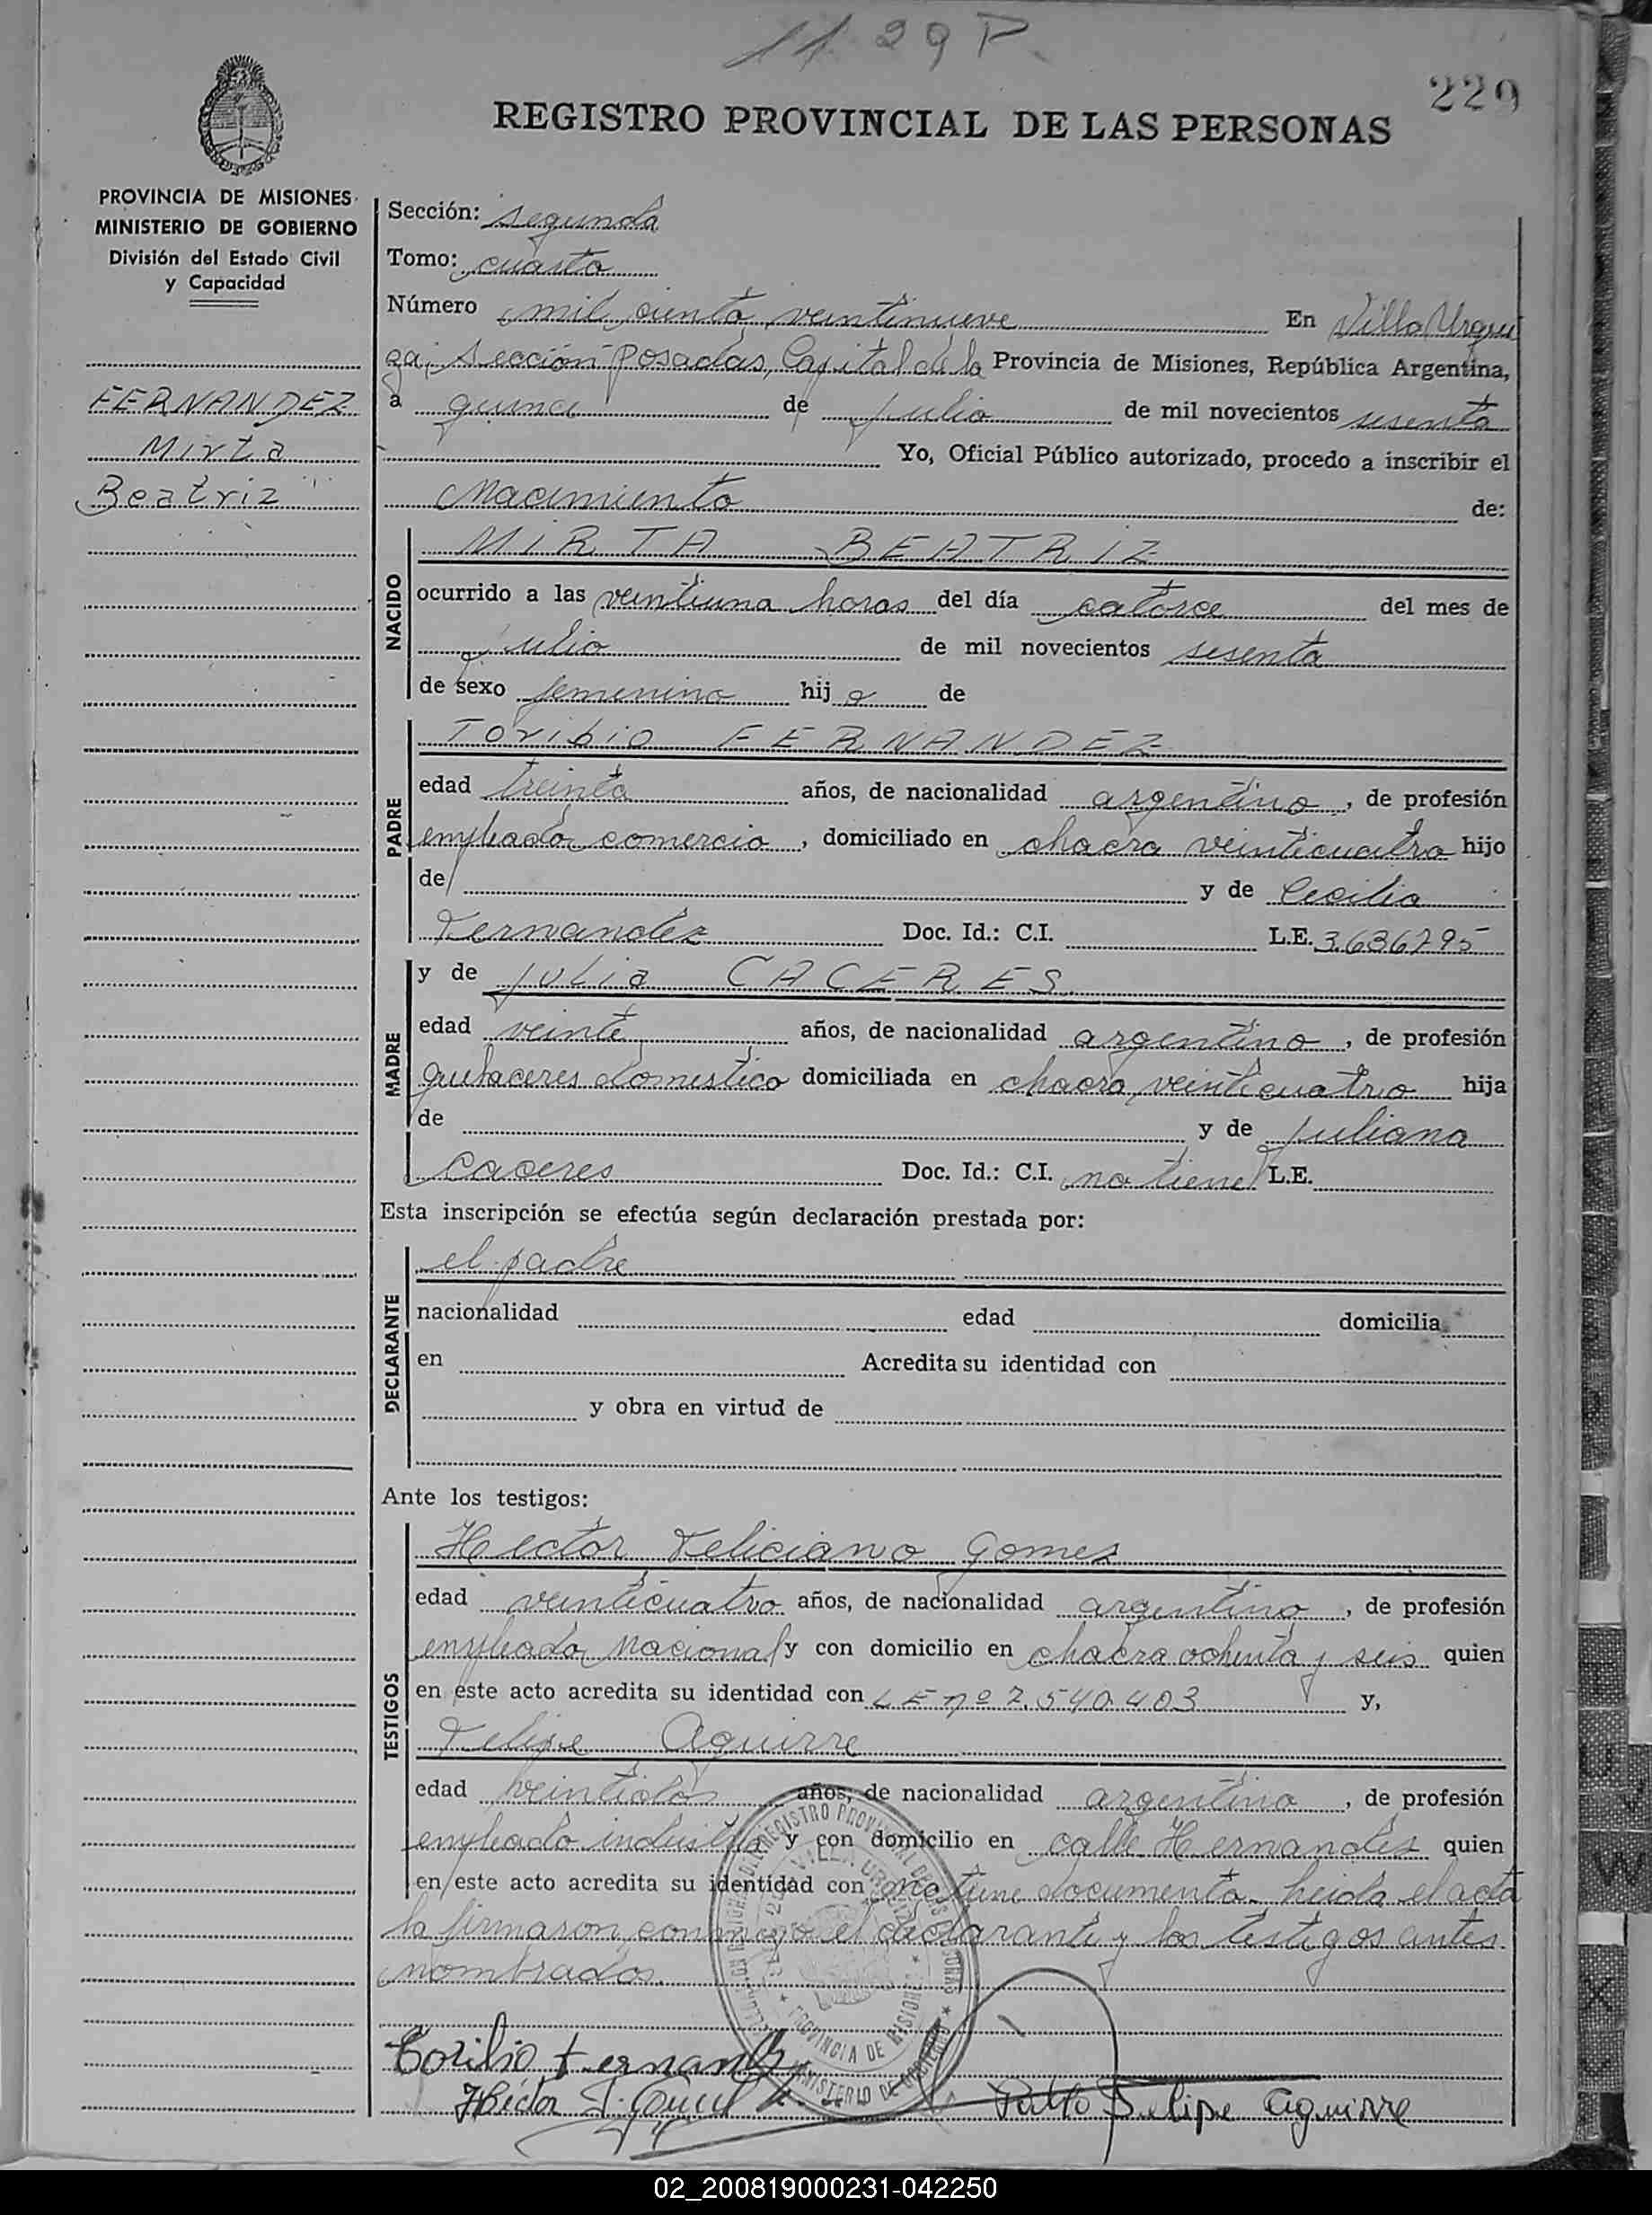 11 29 P.
229
REGISTRO PROVINCIAL DE LAS PERSONAS
PROVINCIA DE MISIONES
MINISTERIO DE GOBIERNO
División del Estado Civil
y Capacidad
FERNANDEZ
Mirta
Beatriz
Sección: segunda
Tomo: cuarto
Número mil ciento veintinueve En Villa Urqui
za, Sección Posadas, Capital de la Provincia de Misiones, República Argentina,
a quince de julio de mil novecientos sesenta
Yo, Oficial Público autorizado, procedo a inscribir el
Nacimiento de:
NACIDO
MIRTA BEATRIZ
ocurrido a las veintiuna horas del día catorce del mes de
julio de mil novecientos sesenta
de sexo femenino hija de
PADRE
Toribio FERNANDEZ
edad treinta años, de nacionalidad argentino, de profesión
empleado comercio, domiciliado en chacra veinticuatro hijo
de y de Cecilia
Fernandez Doc. Id.: C.I. L.E. 3.636.295
MADRE
y de Julia CACERES
edad veinte años, de nacionalidad argentino, de profesión
quehaceres domestico domiciliada en chacra veinticuatro hija
de y de Juliana
Caceres Doc. Id.: C.I. no tiene L.E.
Esta inscripción se efectúa según declaración prestada por:
DECLARANTE
el padre
nacionalidad edad domicilia
en Acredita su identidad con
y obra en virtud de
Ante los testigos:
TESTIGOS
Hector Feliciano Gomez
edad veinticuatro años, de nacionalidad argentino, de profesión
empleado Nacional y con domicilio en chacra ochenta y seis quien
en este acto acredita su identidad con L E nº 7.540.403 y,
Felipe Aguirre
edad veintidos años, de nacionalidad argentino, de profesión
empleado industria y con domicilio en calle Hernandez quien
en este acto acredita su identidad con no tiene documento. Leida el acta
la firmaron conmigo el declarante y los testigos antes
nombrados.
REGISTRO PROVINCIAL DE LAS PERSONAS
VILLA URQUIZA
PROVINCIA DE MISIONES
MINISTERIO DE GOBIERNO
Toribio Fernandez
Héctor F. Gomez
Pablo Felipe Aguirre
02_200819000231-042250